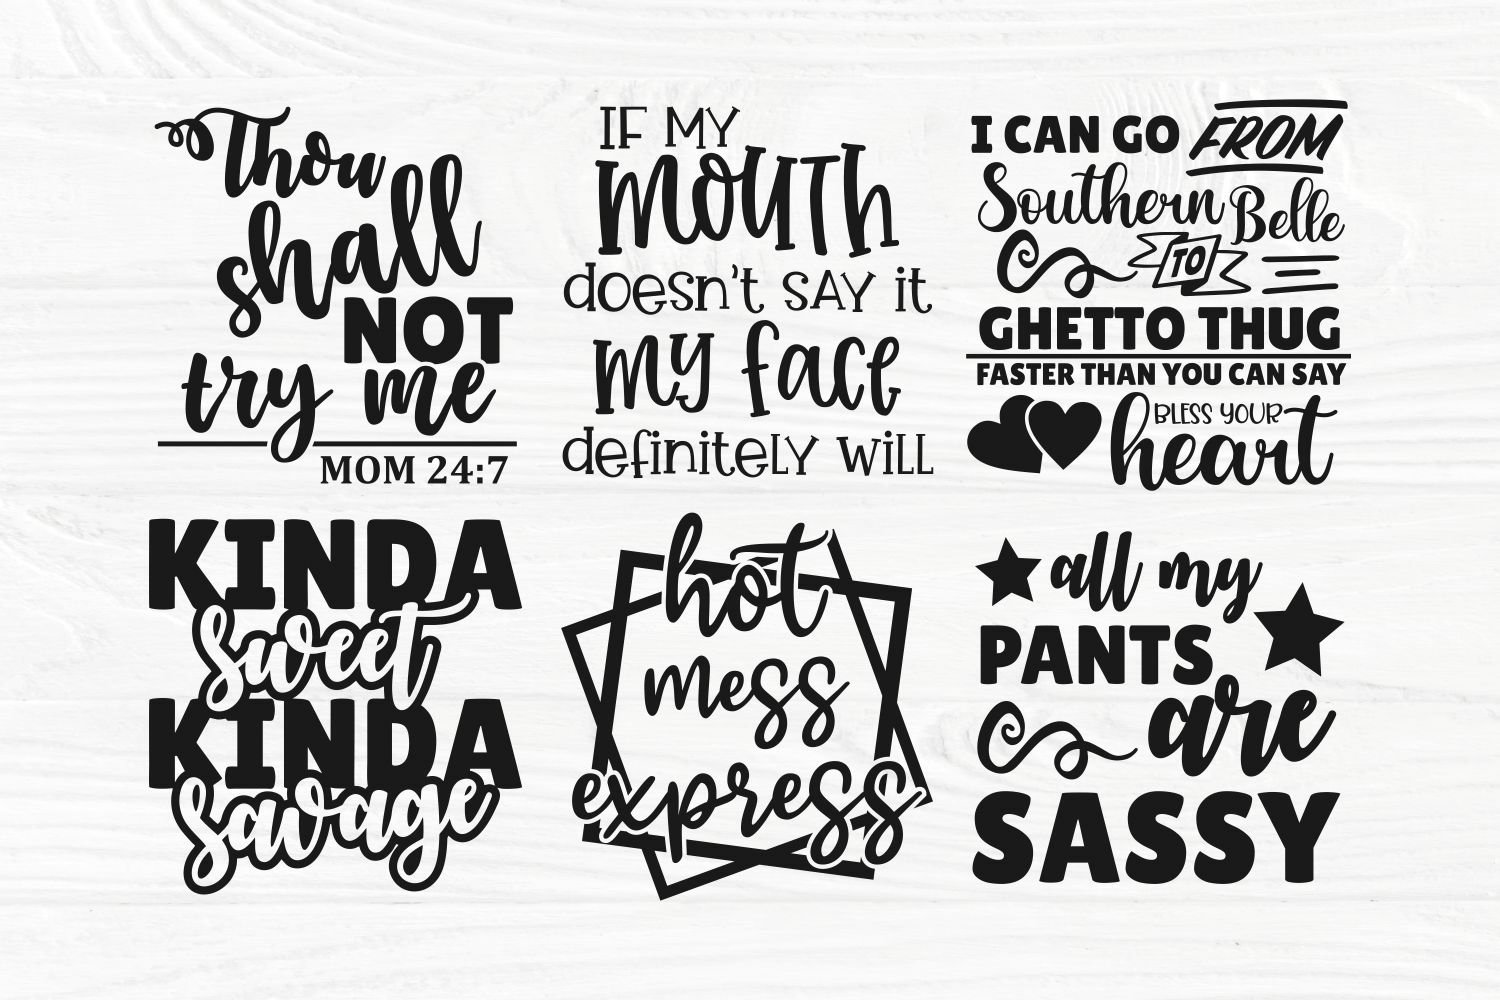 Thou
shall
NOT
try me
MOM 24:7
IF MY
MOUTH
doesn't SAY it
MY face
definitELY WiLL
I CAN GO FROM
Southern Belle
TO
GHETTO THUG
FASTER THAN YOU CAN SAY
BLESS YOUR
heart
KINDA
sweet
KINDA
savage
hot
mess
express
all my
PANTS
are
SASSY